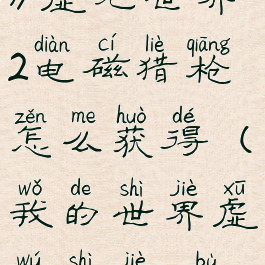 diàn cí liè qiāng
2电磁猎枪
zěn me huò dé
怎么获得（
wǒ de shì jiè xū
我的世界虚
wú shì jiè bù